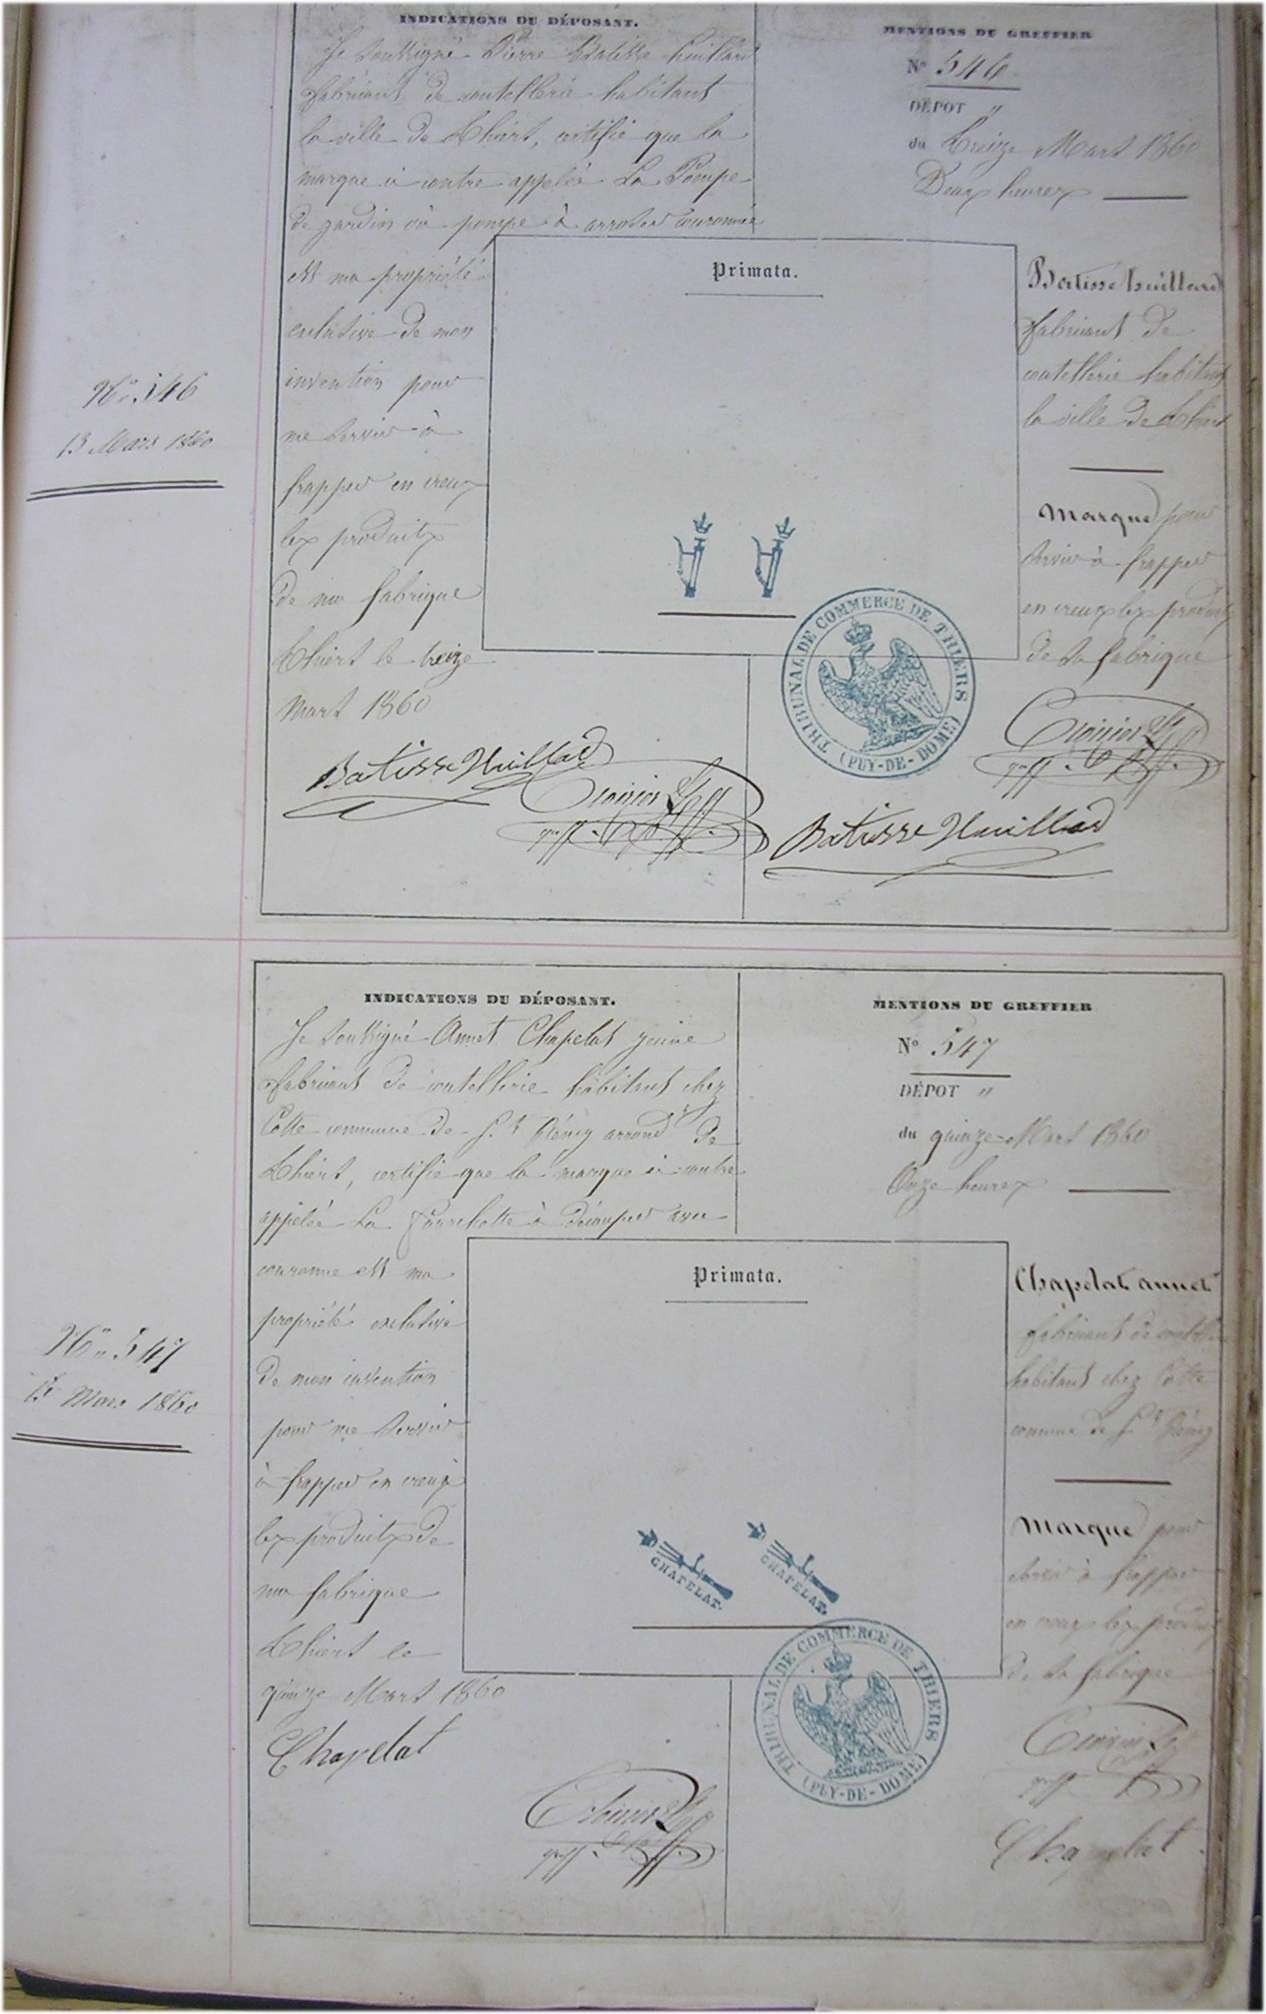 INDICATIONS DU DÉPOSANT.
Je soussigné Pierre Batisse huillard
fabricant de coutellerie habitant
la ville de Thiers, certifie que la
marque ci contre appelée La Pompe
de jardin ou pompe à arroser couronnée
est ma propriété
exclusive de mon
invention pour
me servir à
frapper en creux
les produits
de ma fabrique
Thiers le treize
Mars 1860
Batisse Huillard
MENTIONS DU GREFFIER
N° 546
DÉPOT "
du treize Mars 1860
Deux heures
Primata.
Batisse huillard
fabricant de
coutellerie habitant
la ville de Thiers
Marque pour
servir à frapper
en creux les produits
de sa fabrique
Batisse Huillard
TRIBUNAL DE COMMERCE DE THIERS
(PUY-DE-DOME)
N° 546
13 Mars 1860
INDICATIONS DU DÉPOSANT.
Je soussigné Annet Chapelat jeune
fabricant de coutellerie habitant chez
Cotte commune de St Rémy arrondt de
Thiers, certifie que la marque ci contre
appelée La fourchette à découper avec
couronne est ma
propriété exclusive
de mon invention
pour me servir
à frapper en creux
les produits de
ma fabrique
Thiers le
quinze Mars 1860
Chapelat
MENTIONS DU GREFFIER
N° 547
DÉPOT "
du quinze Mars 1860
Onze heures
Primata.
CHAPELAT.
CHAPELAT.
Chapelat annet
fabricant de coutellerie
habitant chez Cotte
commune de St Rémy
Marque pour
servir à frapper
en creux les produits
de sa fabrique
Chapelat
TRIBUNAL DE COMMERCE DE THIERS
(PUY-DE-DOME)
N° 547
15 Mars 1860